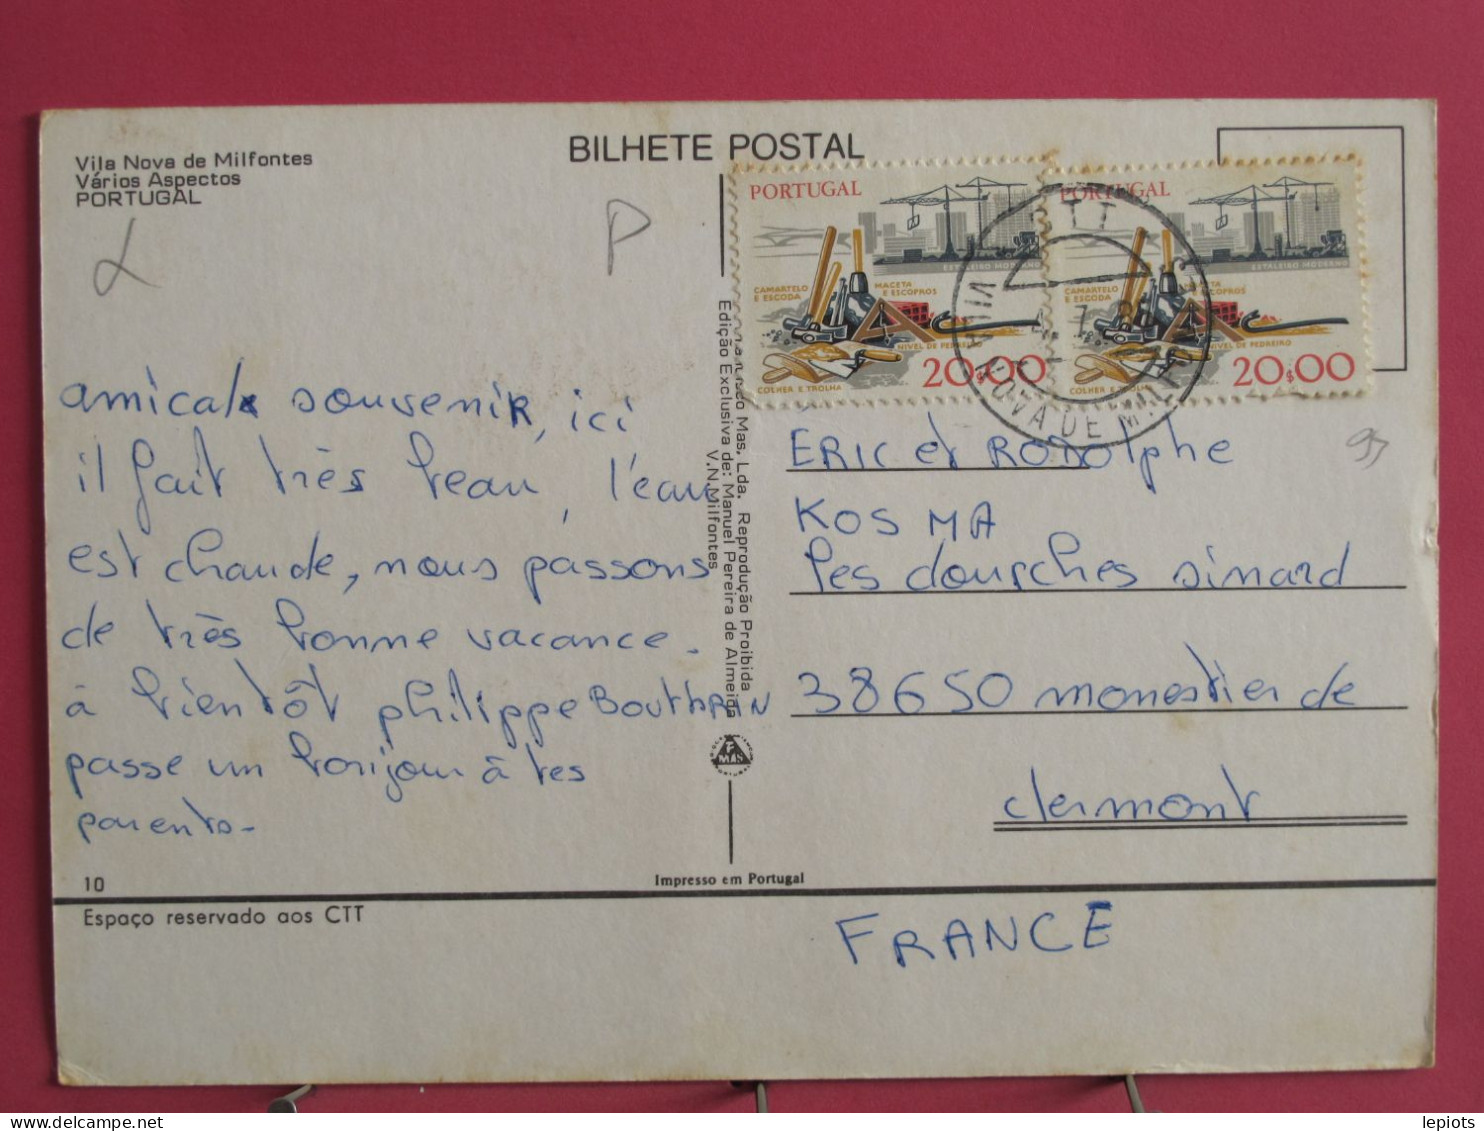 BILHETE POSTAL
Vila Nova de Milfontes
Vários Aspectos
PORTUGAL
P
PORTUGAL
ESTALEIRO MODERNO
CAMARTELO E ESCODA
MACETA E ESCOPROS
NIVEL DE PEDREIRO
COLHER E TROLHA
20$00
PORTUGAL
ESTALEIRO MODERNO
CAMARTELO E ESCODA
NIVEL DE PEDREIRO
COLHER E TROLHA
20$00
CTT
NOVA DE MIL
amical souvenir, ici
il fait très beau, l'eau
est chaude, nous passons
de très bonne vacance.
à bientôt philippe Bouthrin
passe un bonjour à tes
parents-
Mas, Lda. Reprodução Proibida
Edição Exclusiva de: Manuel Pereira de Almeida
V.N.Milfontes
MAS
ERIC et RODolphe
KOSMA
les dourches simard
38650 monestier de
clermont
FRANCE
93
10
Impresso em Portugal
Espaço reservado aos CTT
lepiots